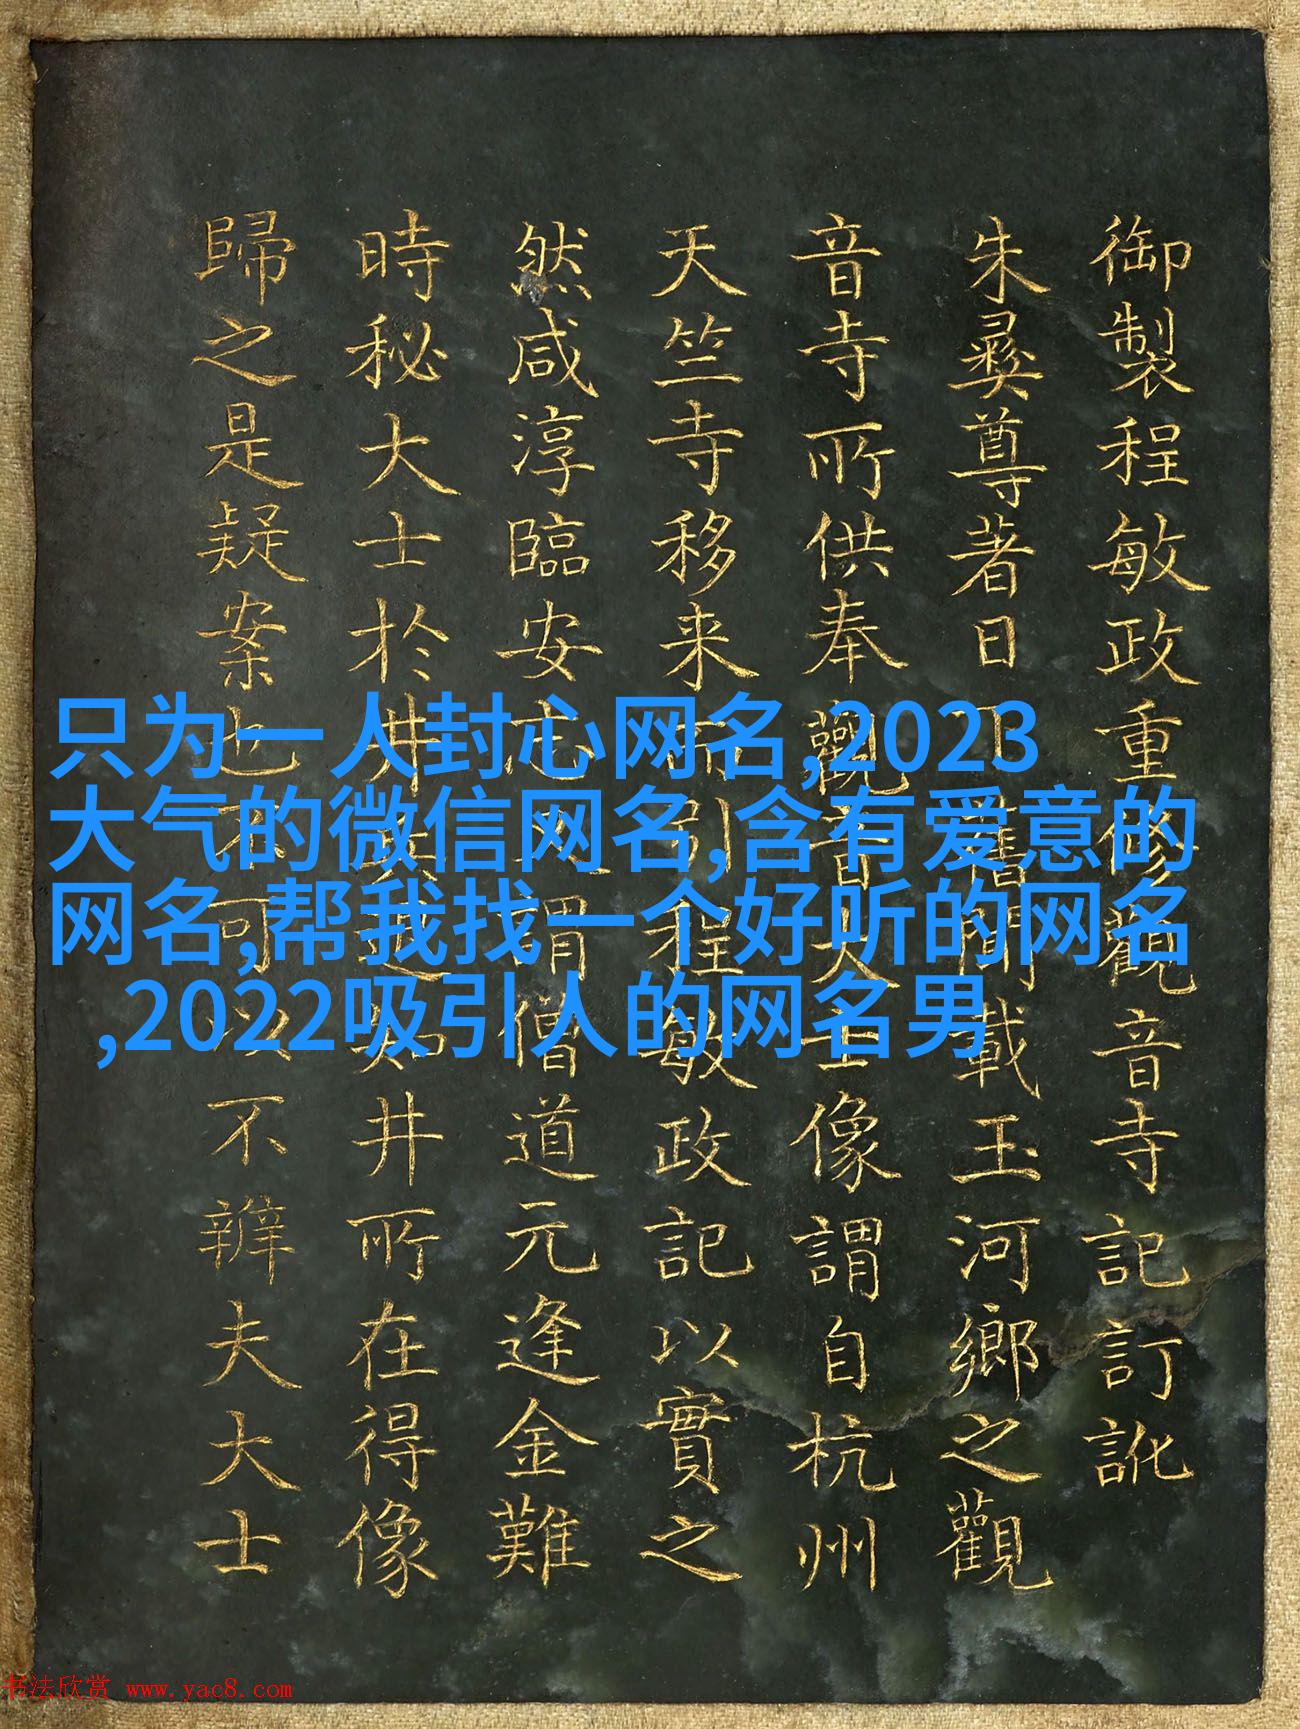 御製程敏政重修觀音寺記訂訛
朱彝尊著日下舊聞載玉河鄉之觀
音寺所供奉觀音大士像謂自杭州
天竺寺移来而引程敏政記以實之
然咸淳臨安志謂僧道元逢金難
時秘大士於井井所在得像
歸之是疑案也不可以不辨夫大士
只为一人封心网名,2023
大气的微信网名,含有爱意的
网名,帮我找一个好听的网名
,2022吸引人的网名男
书法欣赏 www.yac8.com